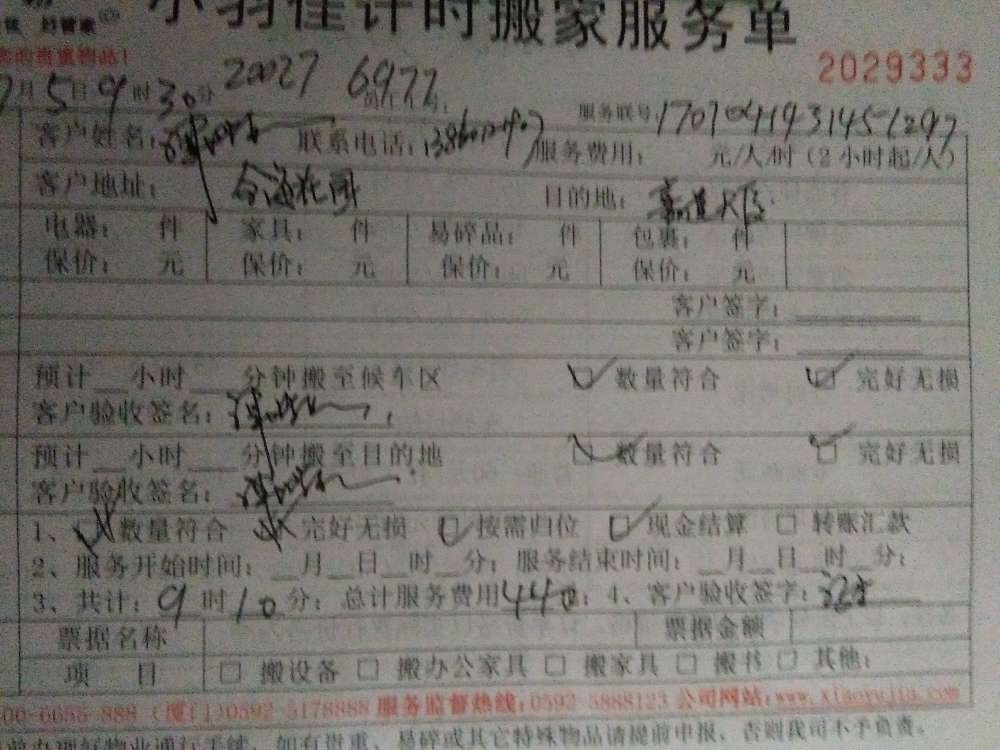 小羽佳计时搬家服务单
的贵重物品!
2029333
月5日9时30分 20027 6977
服务联号:
客户姓名: 联系电话: 服务费用: 元/人/时(2小时起/人)
客户地址: 目的地:
电器: 件 家具: 件 易碎品: 件 包裹: 件
保价: 元 保价: 元 保价: 元 保价: 元
客户签字:
客户签字:
预计__小时__分钟搬至候车区 数量符合 完好无损
客户验收签名:
预计__小时__分钟搬至目的地 数量符合 完好无损
客户验收签名:
1、数量符合 完好无损 按需归位 现金结算 □ 转账汇款
2、服务开始时间:__月__日__时__分; 服务结束时间:__月__日__时__分;
3、共计:9时10分; 总计服务费用440; 4、客户验收签字:
票据名称 票据金额
项 目 □ 搬设备 □ 搬办公家具 □ 搬家具 □ 搬书 □ 其他:
00-6655-888 (厦门)0592-5178888 服务监督热线:0592-5888123 公司网站:www.xiaoyujia.com
前办理好物业通行手续,如有贵重、易碎或其它特殊物品请提前申报,否则我司不予负责。